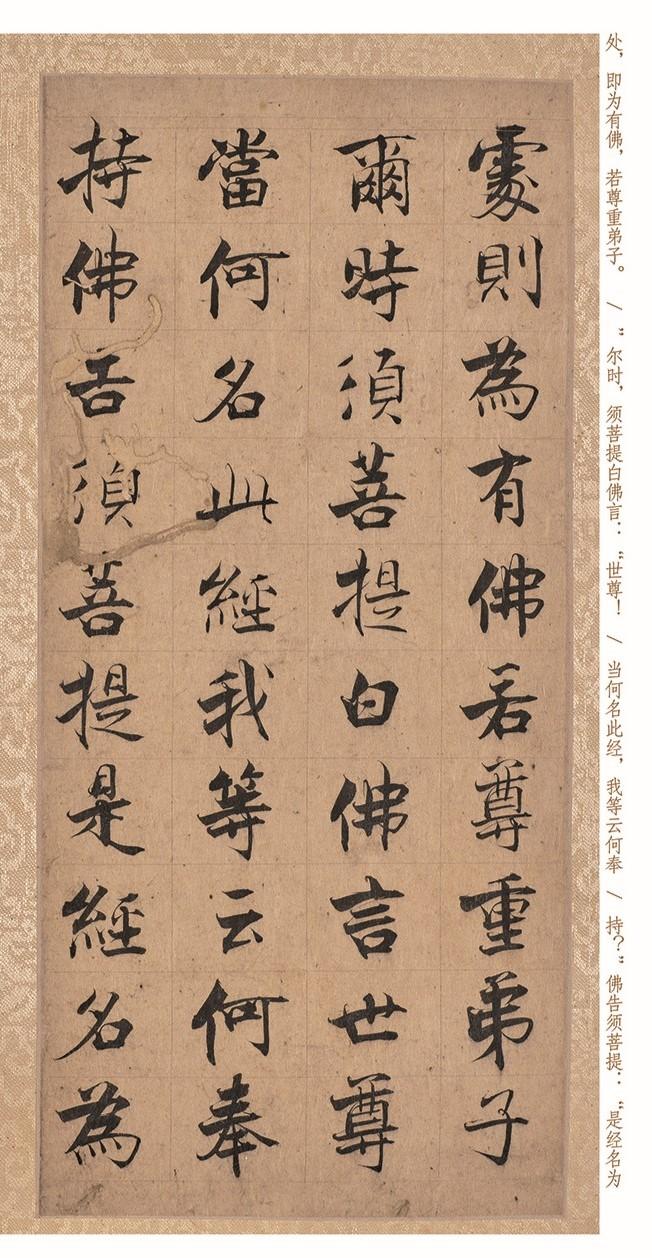 处，即为有佛，若尊重弟子。/ ”尔时，须菩提白佛言：“世尊！/ 当何名此经，我等云何奉 / 持？”佛告须菩提：“是经名为
處則為有佛若尊重弟子
爾時須菩提白佛言世尊
當何名此經我等云何奉
持佛告須菩提是經名為